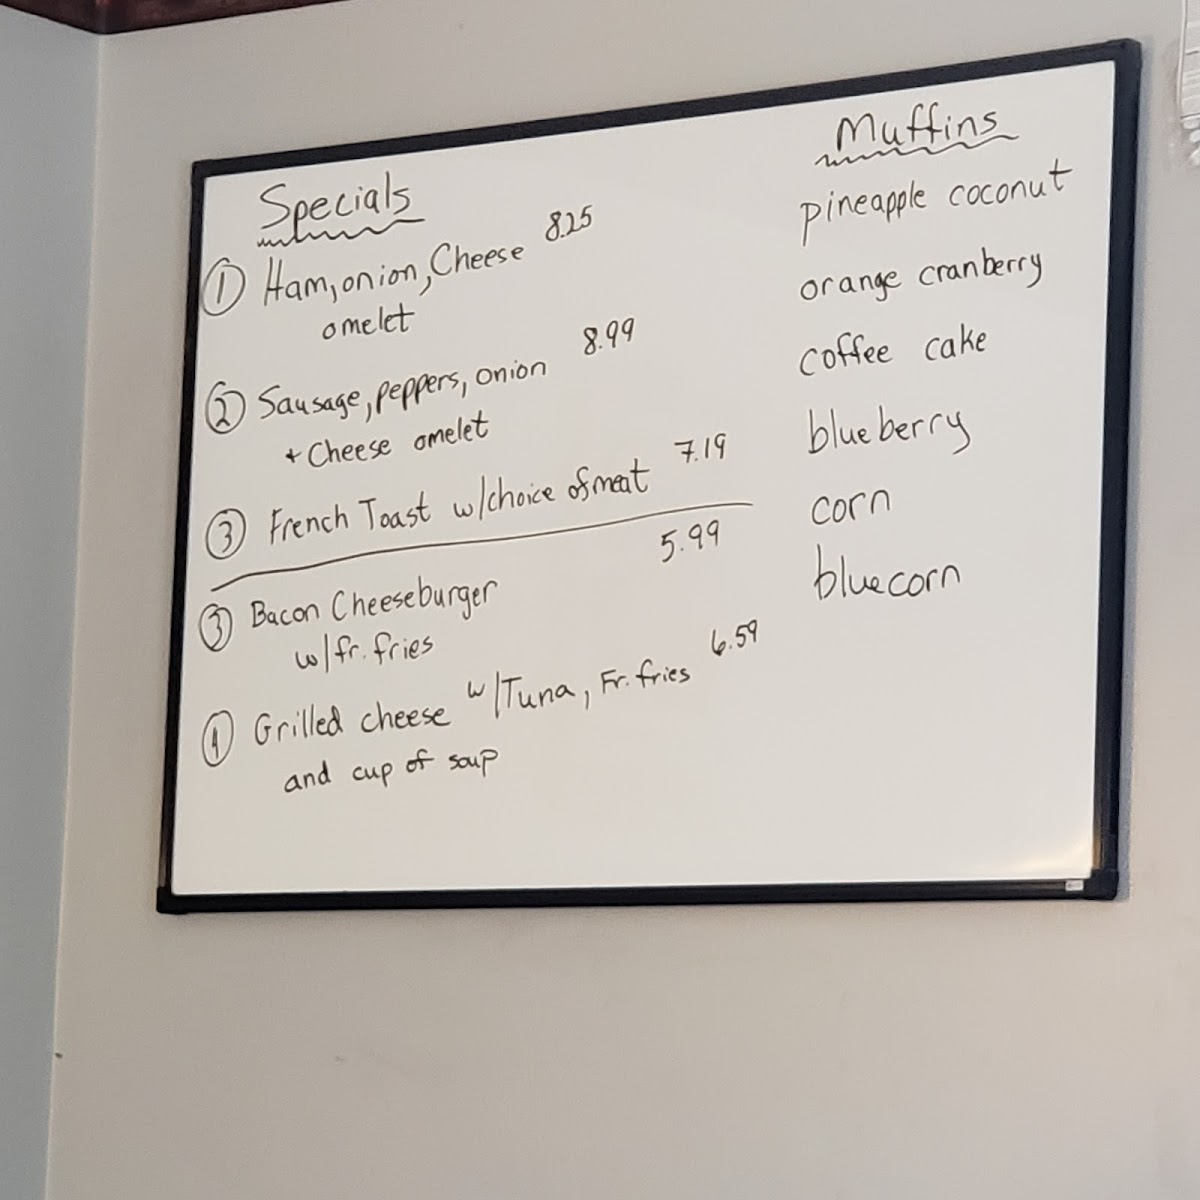 Specials
① Ham, onion, Cheese 8.25
omelet
② Sausage, peppers, onion 8.99
+ Cheese omelet
③ French Toast w/choice of meat 7.19
③ Bacon Cheeseburger 5.99
w/fr. fries
④ Grilled cheese w/Tuna, Fr. fries 6.59
and cup of soup
Muffins
pineapple coconut
orange cranberry
coffee cake
blueberry
corn
bluecorn